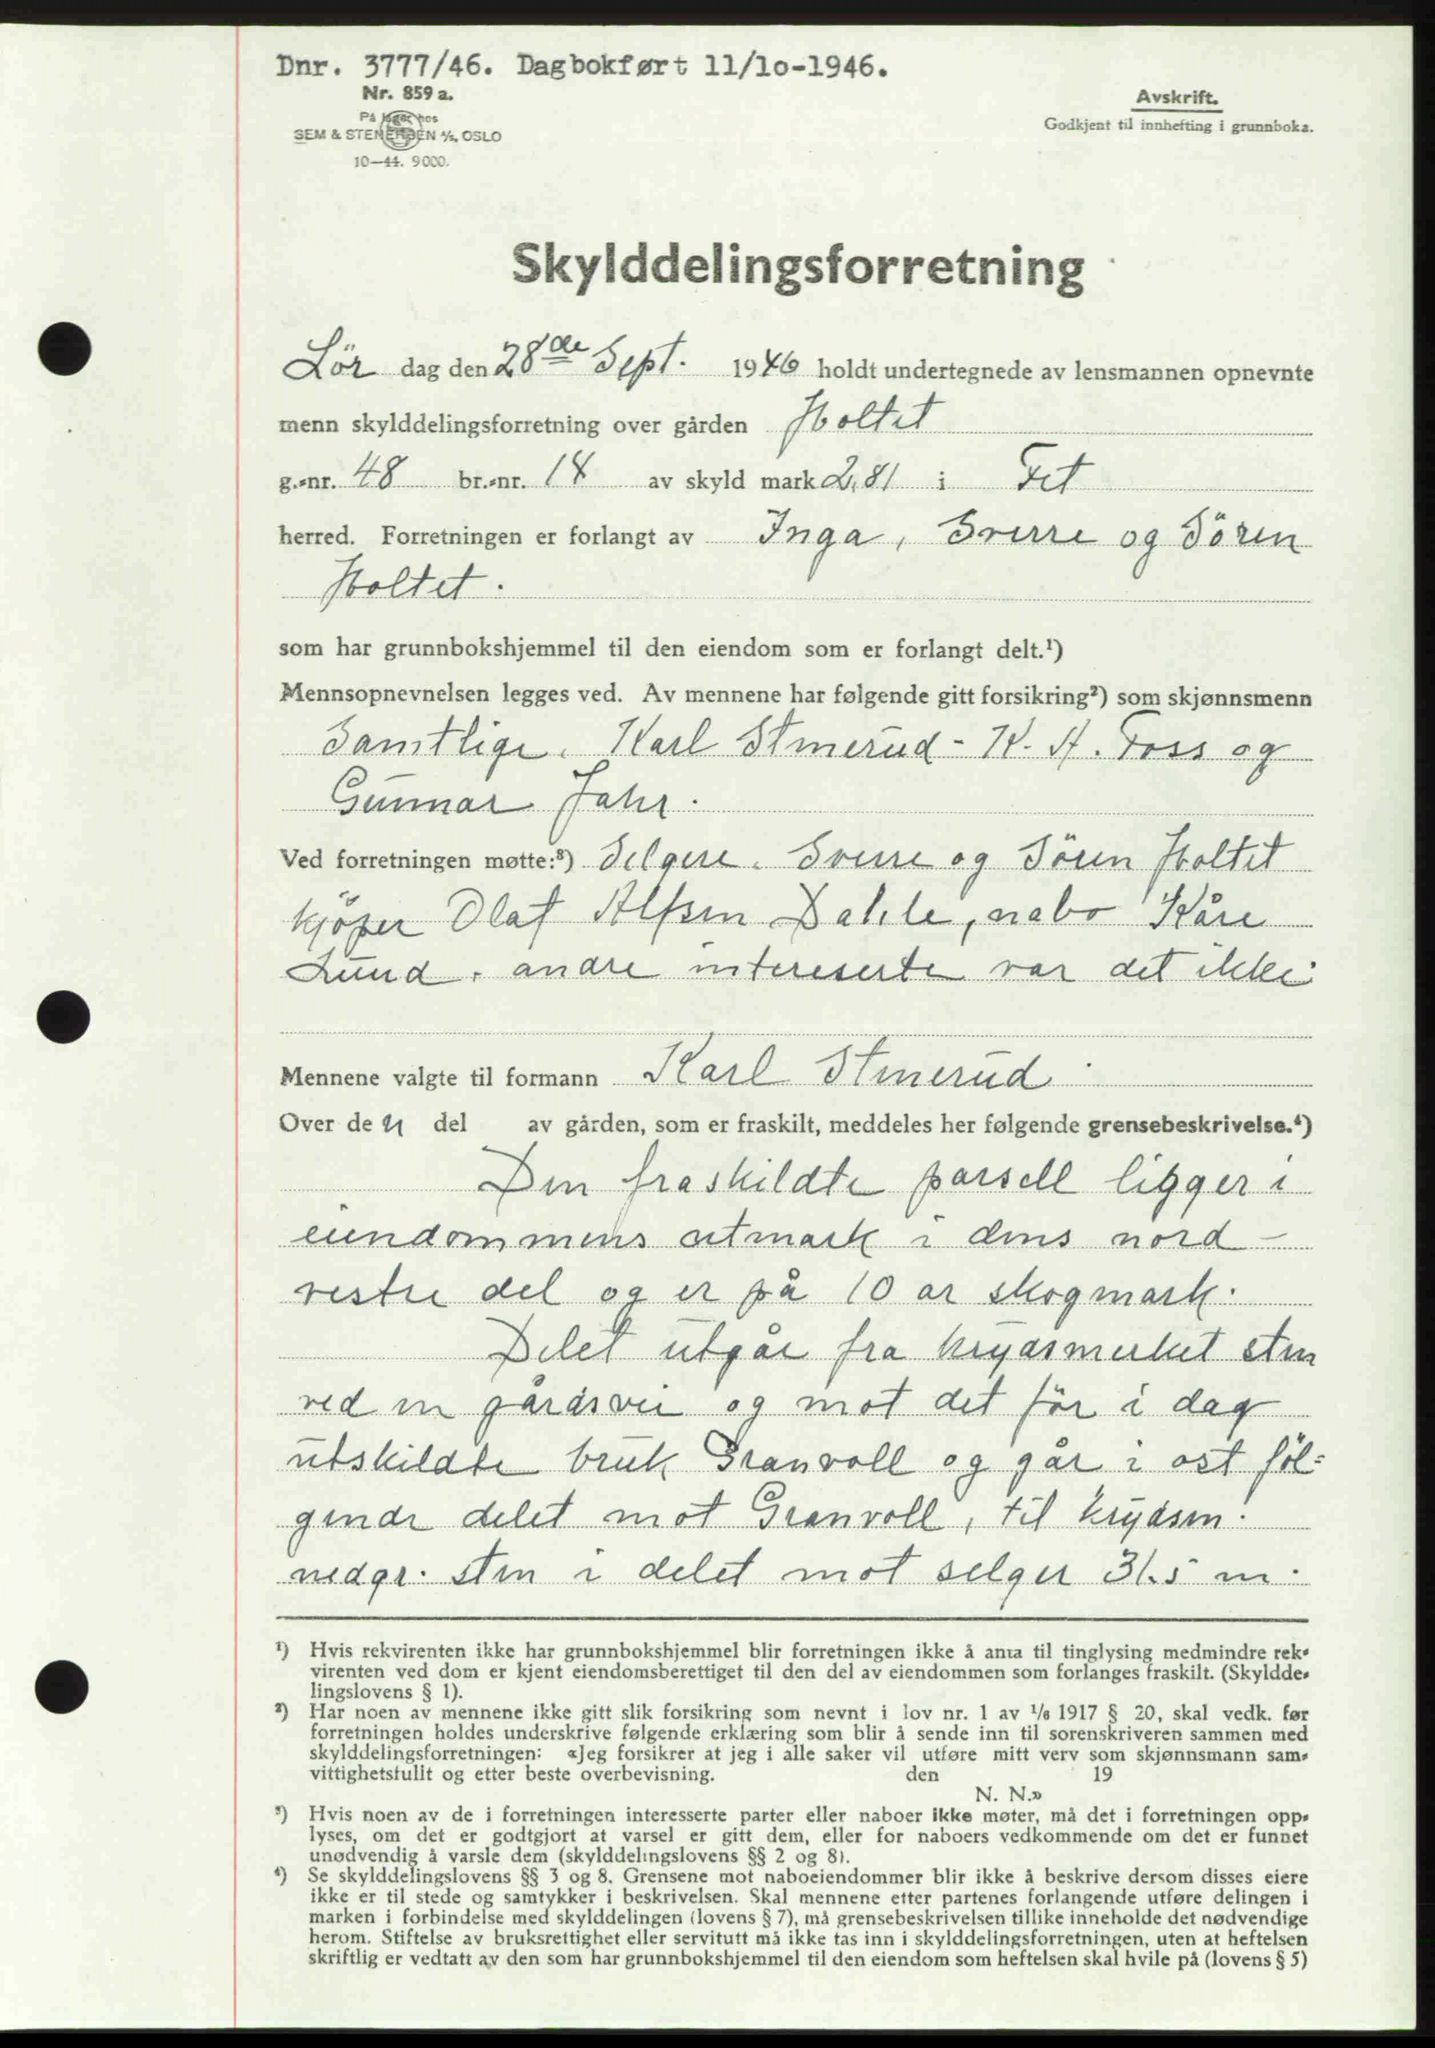 Dnr. 3777/46. Dagbokført 11/10-1946.
Nr. 859 a.
På lager hos
SEM & STENERSEN A/S, OSLO
10—44. 9000.
Avskrift.
Godkjent til innhefting i grunnboka.
Skylddelingsforretning
Lör dag den 28de Sept. 1946 holdt undertegnede av lensmannen opnevnte
menn skylddelingsforretning over gården Holtet
g.-nr. 48 br.-nr. 14 av skyld mark 2,81 i Fet
herred. Forretningen er forlangt av Inga, Sverre og Sören
Holtet.
som har grunnbokshjemmel til den eiendom som er forlangt delt.¹)
Mennsopnevnelsen legges ved. Av mennene har følgende gitt forsikring²) som skjønnsmenn
Samtlige. Karl Stmerud - K. A. Foss og
Gunnar Jahr.
Ved forretningen møtte:³) Selgere. Sverre og Sören Holtet
kjöper Olaf Alfsen Dahle, nabo Kåre
Lund. andre intereserte var det ikke.
Mennene valgte til formann Karl Stmerud.
Over de n del av gården, som er fraskilt, meddeles her følgende grensebeskrivelse.⁴)
Den fraskildte parsell ligger i
eiendommens utmark i dens nord-
vestre del og er på 10 ar skogmark.
Delet utgår fra krydsmerket sten
ved en gårdsvei og mot det för i dag
utskildte bruk Granvoll og går i ost föl=
gende delet mot Granvoll, til krydsm.
nedgr. sten i delet mot selger 31.5 m.
¹) Hvis rekvirenten ikke har grunnbokshjemmel blir forretningen ikke å anta til tinglysing medmindre rek-
virenten ved dom er kjent eiendomsberettiget til den del av eiendommen som forlanges fraskilt. (Skyldde-
lingslovens § 1).
²) Har noen av mennene ikke gitt slik forsikring som nevnt i lov nr. 1 av 1/6 1917 § 20, skal vedk. før
forretningen holdes underskrive følgende erklæring som blir å sende inn til sorenskriveren sammen med
skylddelingsforretningen: «Jeg forsikrer at jeg i alle saker vil utføre mitt verv som skjønnsmann sam-
vittighetsfullt og etter beste overbevisning. den 19
N. N.»
³) Hvis noen av de i forretningen interesserte parter eller naboer ikke møter, må det i forretningen opp-
lyses, om det er godtgjort at varsel er gitt dem, eller for naboers vedkommende om det er funnet
unødvendig å varsle dem (skylddelingslovens §§ 2 og 8).
⁴) Se skylddelingslovens §§ 3 og 8. Grensene mot naboeiendommer blir ikke å beskrive dersom disses eiere
ikke er til stede og samtykker i beskrivelsen. Skal mennene etter partenes forlangende utføre delingen i
marken i forbindelse med skylddelingen (lovens § 7), må grensebeskrivelsen tillike inneholde det nødvendige
herom. Stiftelse av bruksrettighet eller servitutt må ikke tas inn i skylddelingsforretningen, uten at heftelsen
skriftlig er vedtatt av den som har grunnbokshjemmel til den eiendom som heftelsen skal hvile på (lovens § 5)